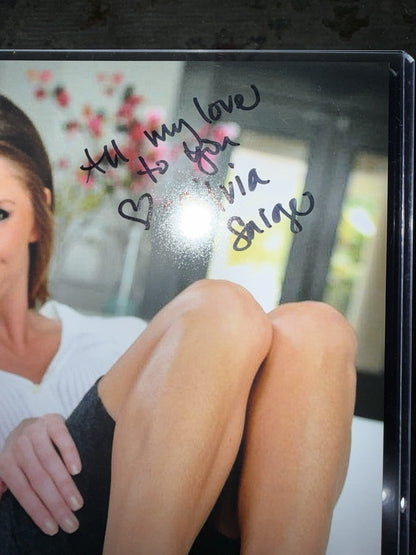 All my love
to you
♡ Olivia
Saige